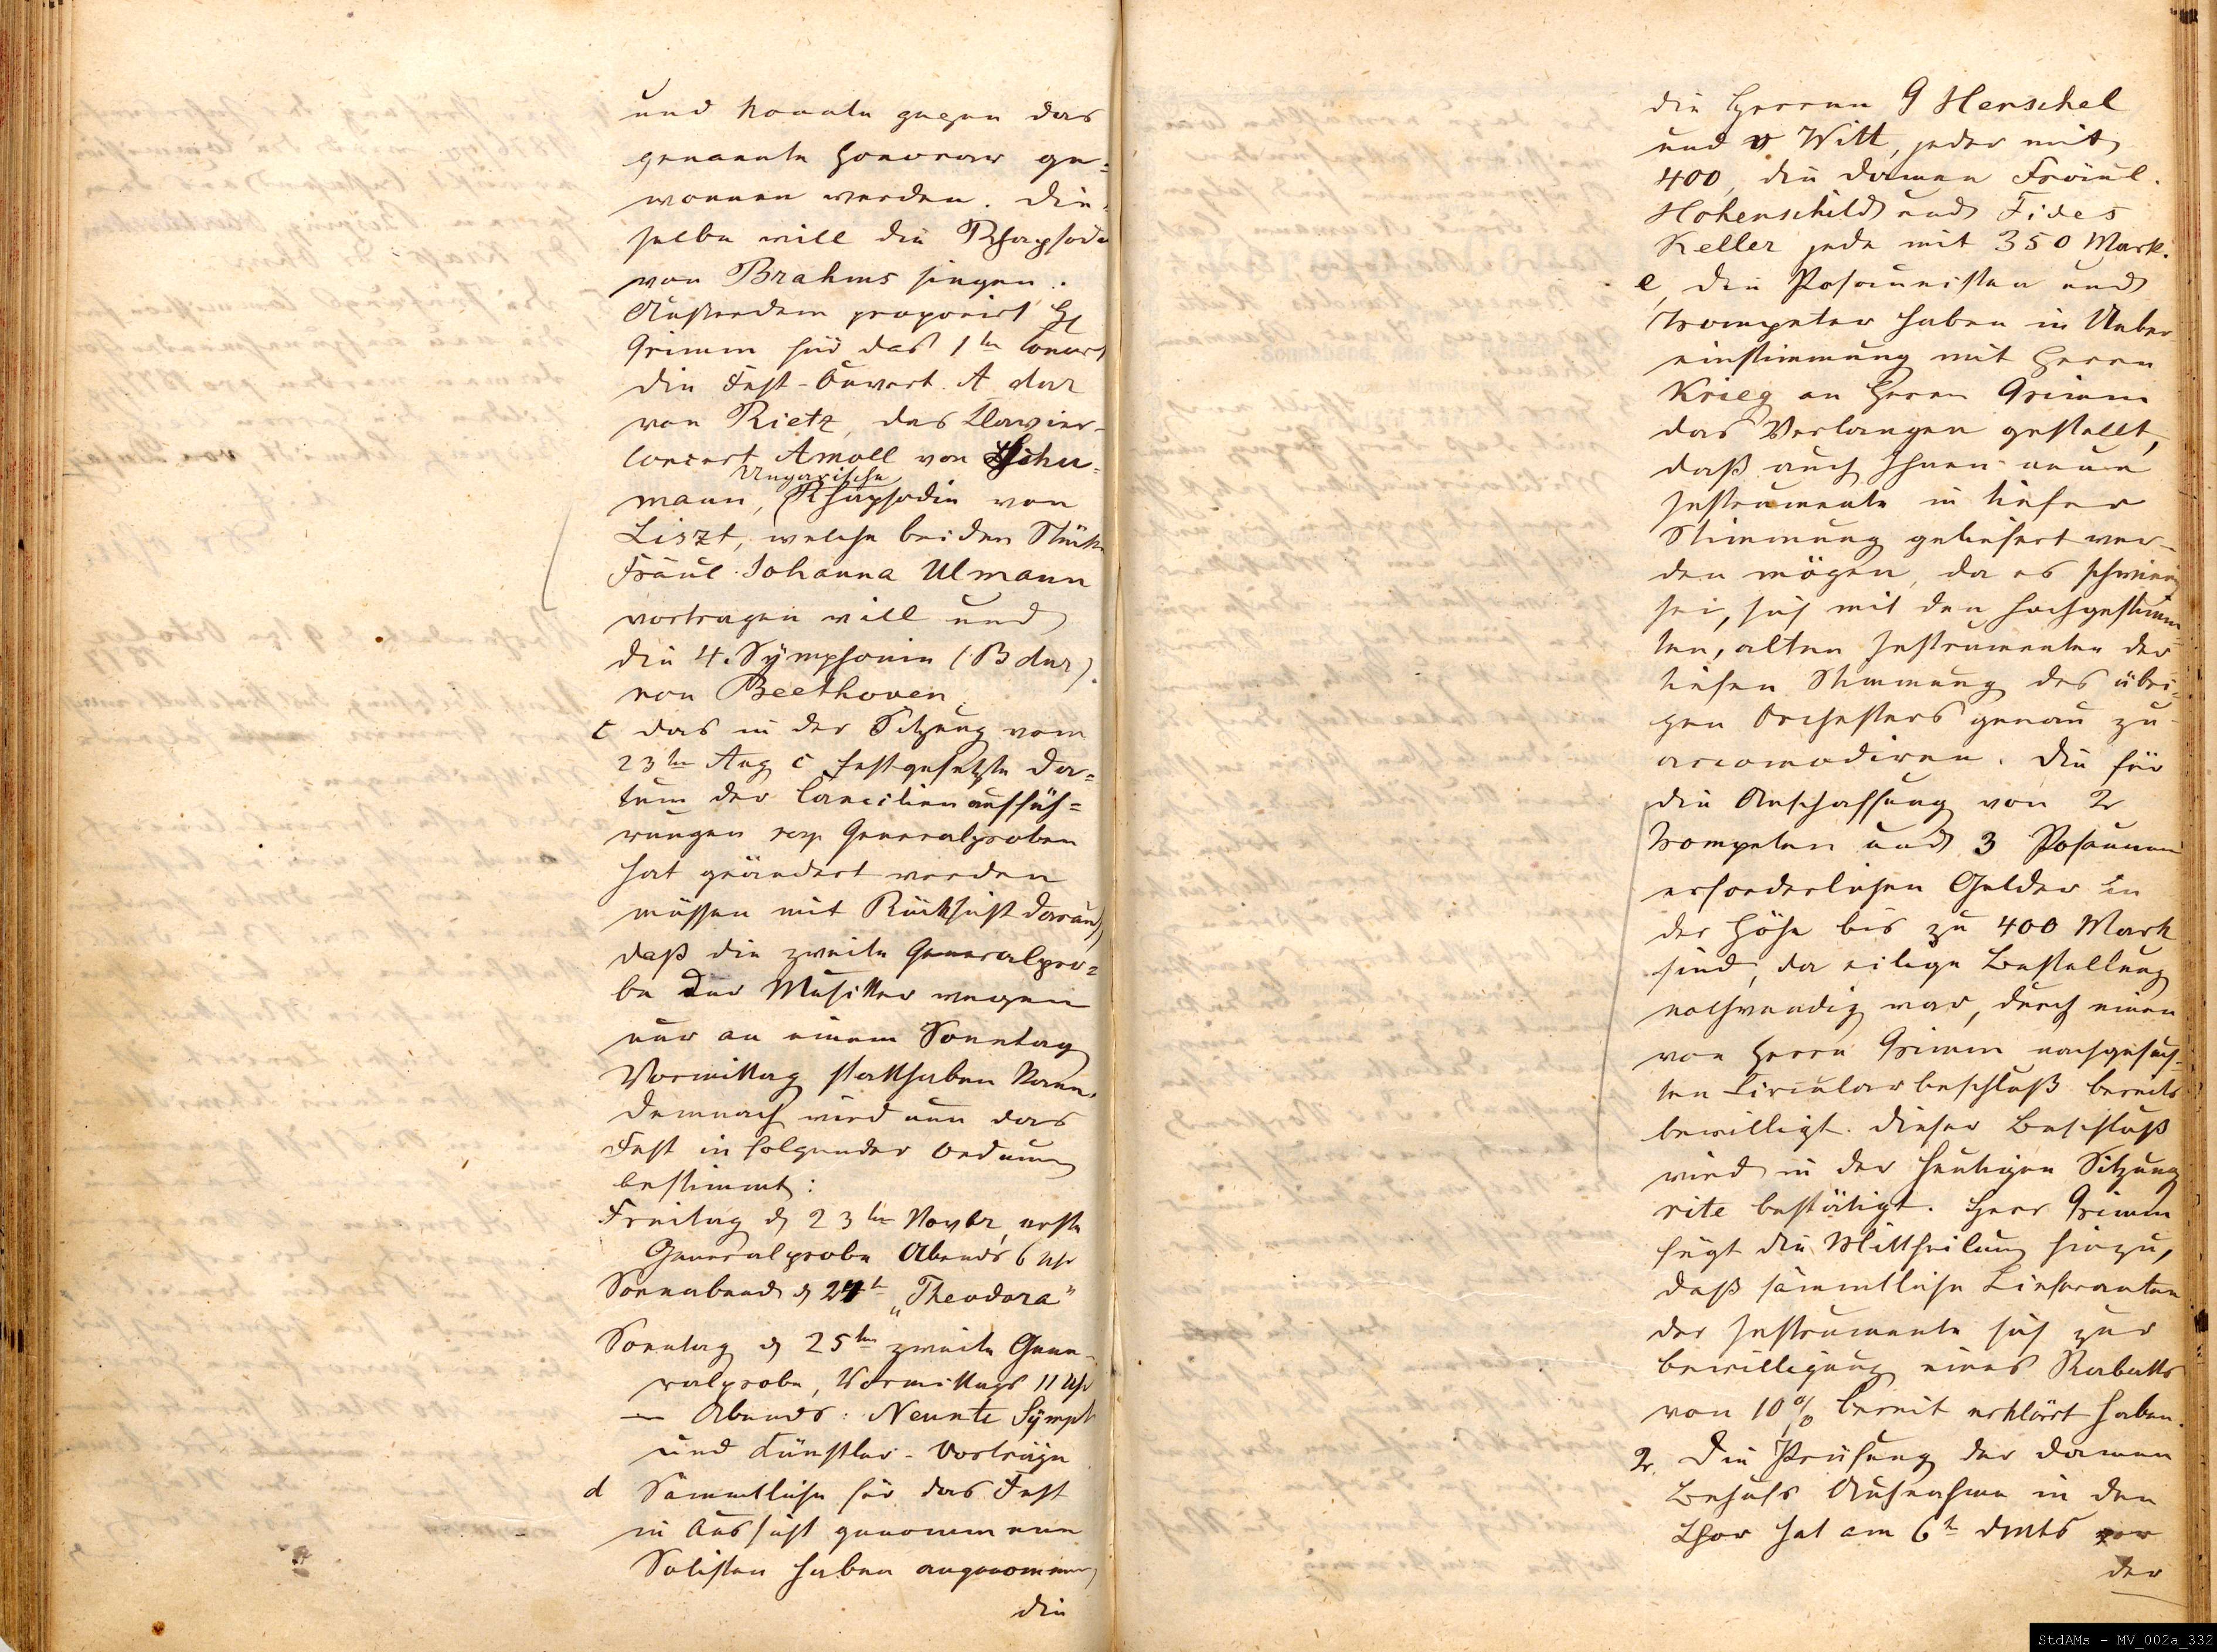 und konnte gegen das
genannte Honorar ge=
wonnen werden. Die=
selbe will die Rhapsodie
von Brahms singen.
Außerdem proponirt H
Grimm für das 1te Concert
die Fest-Ouvert. A dur
von Rietz, das Clavier-
Concert Amoll von Schu=
mann, Ungarische Rhapsodie von
Liszt, welche beiden Stücke
Fräul. Johanna Ulmann
vortragen will und
die 4. Symphonie (B dur).
von Beethoven.
c das in der Sitzung vom
23ten Aug c festgesetzte Da=
tum der Caecilienauffüh=
rungen resp Generalproben
hat geändert werden
müssen mit Rücksicht darauf,
daß die zweite Generalpro=
be der Musiker wegen
nur an einem Sonntag
Vormittag statthaben kann.
Demnach wird nun das
Fest in folgender Ordnung
bestimmt:
Freitag d 23ten Novbr, erste
Generalprobe Abends 6 Uhr
Sonnabend d 24t „Theodora"
Sonntag d 25ten zweite Gene-
ralprobe, Vormittags 11 Uhr
— Abends: Neunte Symph
und Künstler-Vorträge
d Sämmtliche für das Fest
in Aussicht genommenen
Solisten haben angenommen,
die
die Herren G Henschel
und v Witt, jeder mit
400, die Damen Fräul.
Hohenschild und Fides
Keller jede mit 350 Mark.
e, die Posaunisten und
Trompeter haben in Ueber-
einstimmung mit Herrn
Krieg an Herrn Grimm
das Verlangen gestellt,
daß auch Ihnen neue
Instrumente in tiefer
Stimmung geliefert wer-
den mögen, da es schwierig
sei, sich mit den hochgestimm=
ten, alten Instrumenten der
tiefen Stimmung des übri=
gen Orchesters genau zu
accomodiren. Die für
die Anschaffung von 2
Trompeten und 3 Posaunen
erforderlichen Gelder in
der Höhe bis zu 400 Mark
sind, da eilige Bestellung
nothwendig war, durch einen
von Herrn Grimm nachgesuch=
ten Circularbeschluß bereits
bewilligt. Dieser Beschluß
wird in der heutigen Sitzung
rite bestätigt. Herr Grimm
fügt die Mittheilung hinzu,
daß sämmtliche Lieferanten
der Instrumente sich zur
bewilligung eines Rabatts
von 10% bereit erklärt haben.
2. Die Prüfung der Damen
Behufs Aufnahme in den
Chor hat am 6t dmts vor
der
StdAMs - MV_002a_332